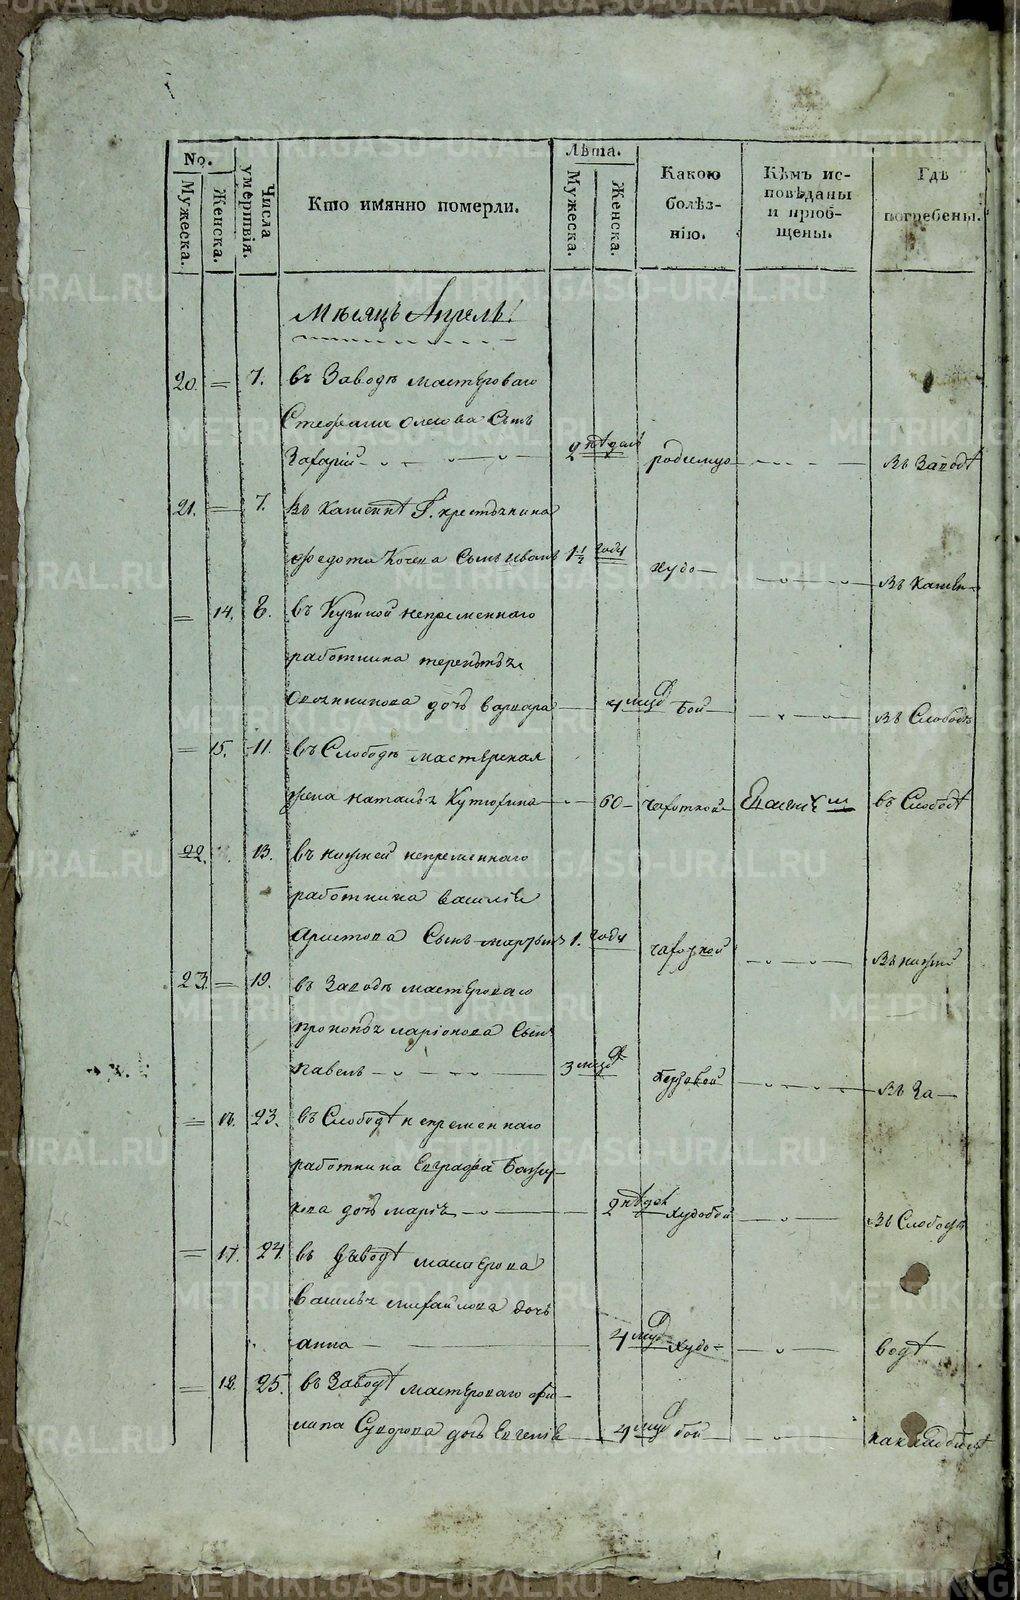 No.
Мужеска.
Женска.
Числа умертвія.
Кто имянно померли.
Лѣта.
Мужеска.
Женска.
Какою болѣз-нію.
Кѣмъ ис-повѣданы и приоб-щены.
Гдѣ погребены.
Мѣсяцъ Апрель.
20. = 7. въ Заводѣ мастероваго
Стефана сынъ
Захарій 2 недѣл родимцо въ Заводѣ
21. = 7. въ крестьянина
Федота Кочева сынъ Иванъ 1 1/2 года худо въ Камен
= 14. 8. въ непременнаго
работника терентья
Овчинникова дочь варвара 4 мцд бой въ Слободѣ
= 15. 11. въ Слободѣ мастерская
жена наталья Кутюхина 60 чахоткой въ Слободѣ
22. 13. въ нижней непременнаго
работника василія
Аристова сынъ мартынъ 1. года чахоткой въ нижней
23. = 19. въ Заводѣ мастероваго
прокопья ларіонова сынъ
павелъ 3 мцд въ За
= 16. 23. въ Слободѣ непременнаго
работника Евграфа
дочь марія 2 недѣл худобой въ Слободѣ
= 17. 24. въ Заводѣ мастерова
василья михайлова дочь
анна 4 мцд худо водѣ
= 18. 25. въ Заводѣ мастероваго фи
липа Суворова дочь Евгенія 4 мцд бой на кладбищѣ
METRIKI.GASO-URAL.RU